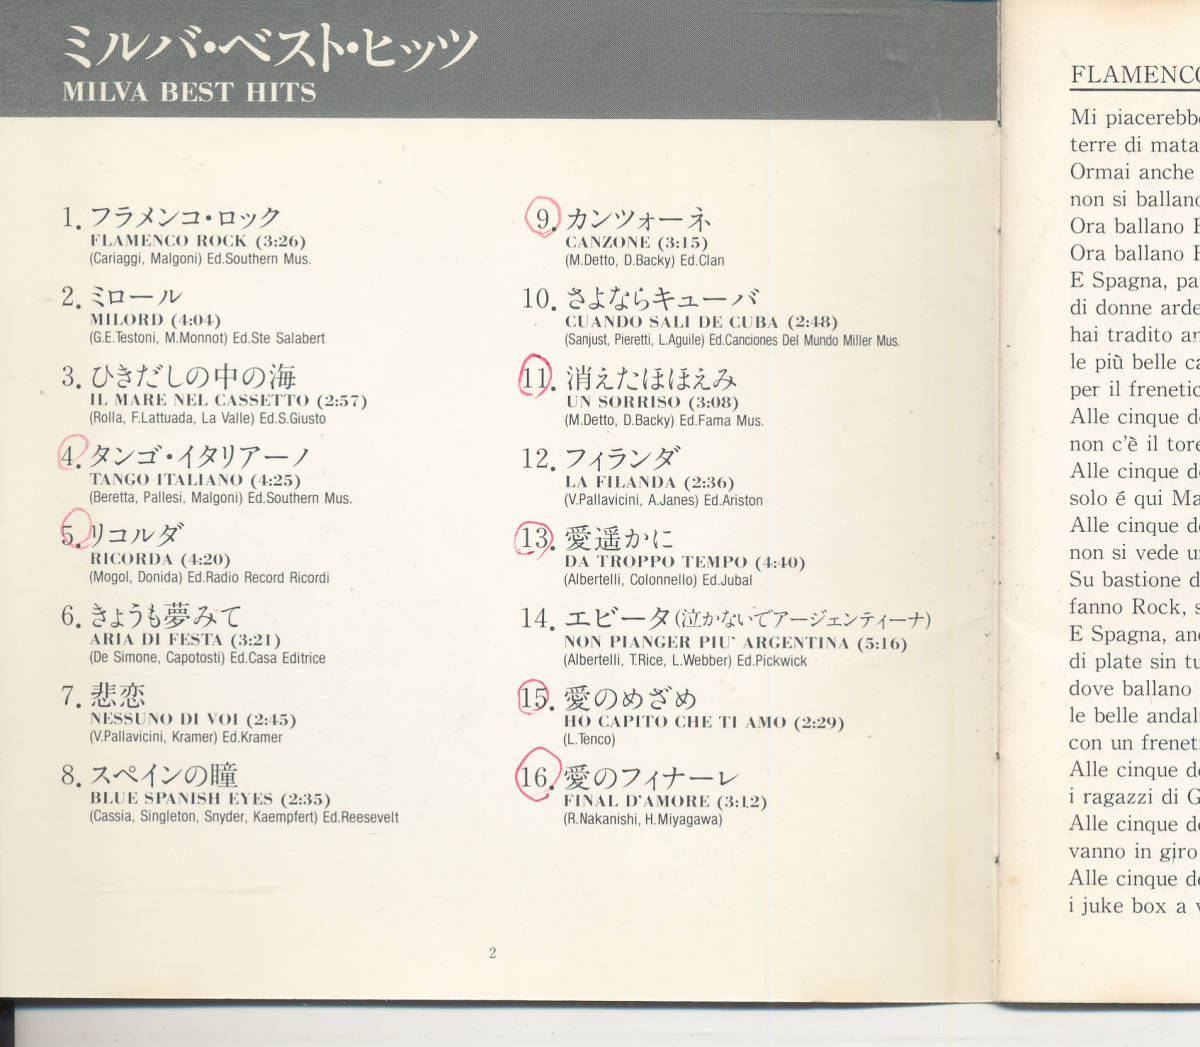 ミルバ・ベスト・ヒッツ
MILVA BEST HITS
1. フラメンコ・ロック
FLAMENCO ROCK (3:26)
(Cariaggi, Malgoni) Ed.Southern Mus.
2. ミロール
MILORD (4:04)
(G.E.Testoni, M.Monnot) Ed.Ste Salabert
3. ひきだしの中の海
IL MARE NEL CASSETTO (2:57)
(Rolla, F.Lattuada, La Valle) Ed.S.Giusto
4. タンゴ・イタリアーノ
TANGO ITALIANO (4:25)
(Beretta, Pallesi, Malgoni) Ed.Southern Mus.
5. リコルダ
RICORDA (4:20)
(Mogol, Donida) Ed.Radio Record Ricordi
6. きょうも夢みて
ARIA DI FESTA (3:21)
(De Simone, Capotosti) Ed.Casa Editrice
7. 悲恋
NESSUNO DI VOI (2:45)
(V.Pallavicini, Kramer) Ed.Kramer
8. スペインの瞳
BLUE SPANISH EYES (2:35)
(Cassia, Singleton, Snyder, Kaempfert) Ed.Reesevelt
9. カンツォーネ
CANZONE (3:15)
(M.Detto, D.Backy) Ed.Clan
10. さよならキューバ
CUANDO SALI DE CUBA (2:48)
(Sanjust, Pieretti, L.Aguile) Ed.Canciones Del Mundo Miller Mus.
11. 消えたほほえみ
UN SORRISO (3:08)
(M.Detto, D.Backy) Ed.Fama Mus.
12. フィランダ
LA FILANDA (2:36)
(V.Pallavicini, A.Janes) Ed.Ariston
13. 愛遥かに
DA TROPPO TEMPO (4:40)
(Albertelli, Colonnello) Ed.Jubal
14. エビータ(泣かないでアージェンティーナ)
NON PIANGER PIU' ARGENTINA (5:16)
(Albertelli, T.Rice, L.Webber) Ed.Pickwick
15. 愛のめざめ
HO CAPITO CHE TI AMO (2:29)
(L.Tenco)
16. 愛のフィナーレ
FINAL D'AMORE (3:12)
(R.Nakanishi, H.Miyagawa)
2
FLAMENCO
Mi piacerebbe
terre di mata
Ormai anche
non si ballano
Ora ballano
Ora ballano
E Spagna, pa
di donne arde
hai tradito an
le più belle ca
per il frenetic
Alle cinque de
non c'è il tore
Alle cinque de
solo é qui Ma
Alle cinque de
non si vede un
Su bastione d
fanno Rock, s
E Spagna, anc
di plate sin tu
dove ballano
le belle andal
con un freneti
Alle cinque de
i ragazzi di G
Alle cinque de
vanno in giro
Alle cinque de
i juke box a v